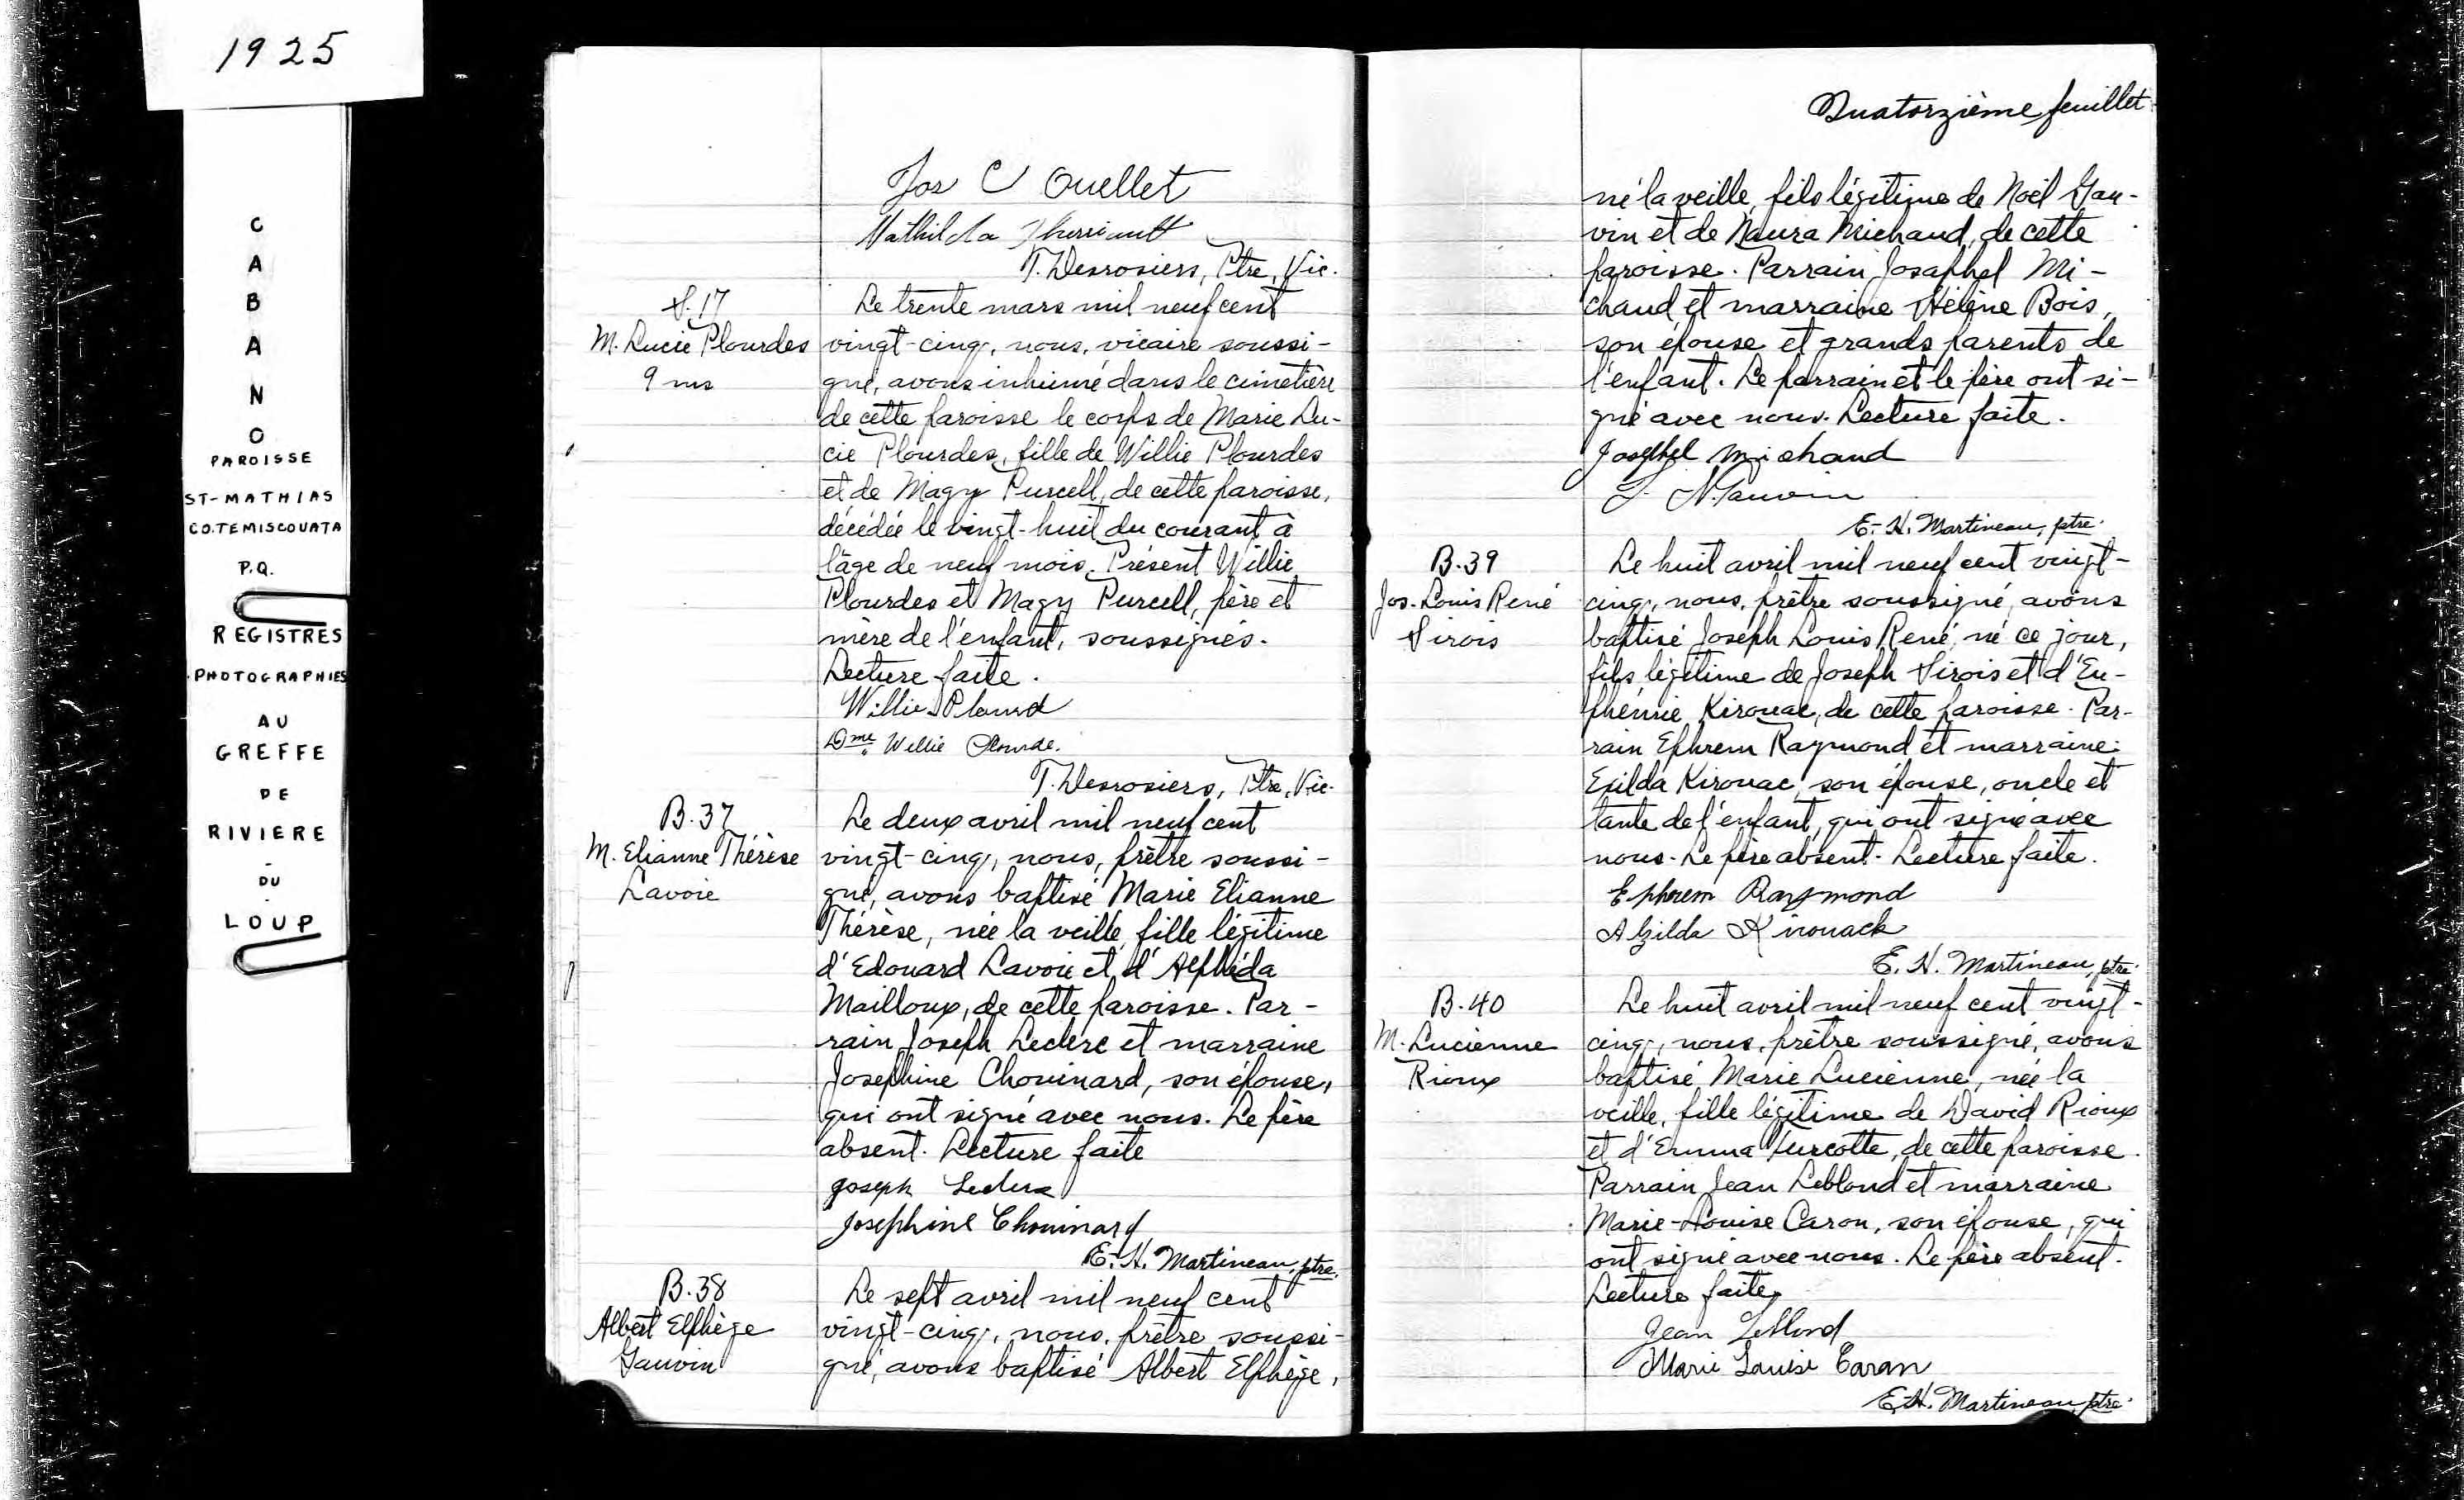 1925
CABANO
PAROISSE
ST-MATHIAS
CO. TEMISCOUATA
P.Q.
REGISTRES
PHOTOGRAPHIES
AU
GREFFE
DE
RIVIERE
-
DU
-
LOUP
Jos C Ouellet
Mathilda Therriault
T. Desrosiers, Ptre, Vic.
S. 17
M. Lucie Plourdes
9 ms
Le trente mars mil neuf cent
vingt-cinq, nous, vicaire soussi-
gné, avons inhumé dans le cimetière
de cette paroisse le corps de Marie Lu-
cie Plourdes, fille de Willie Plourdes
et de Magy Purcell, de cette paroisse,
décédée le vingt-huit du courant à
l'âge de neuf mois. Présent Willie
Plourdes et Magy Purcell, père et
mère de l'enfant, soussignés.
Lecture faite.
Willie Plourd
Dme Willie Plourde.
T. Desrosiers, Ptre, Vic.
B. 37
M. Elianne Thérèse
Lavoie
Le deux avril mil neuf cent
vingt-cinq, nous, prêtre soussi-
gné, avons baptisé Marie Elianne
Thérèse, née la veille, fille légitime
d'Edouard Lavoie et d'Alphéda
Mailloux, de cette paroisse. Par-
rain Joseph Leclerc et marraine
Josephine Chouinard, son épouse,
qui ont signé avec nous. Le père
absent. Lecture faite
Joseph Leclerc
Josephine Chouinard
E.-H. Martineau, ptre.
B. 38
Albert Elphège
Gauvin
Le sept avril mil neuf cent
vingt-cinq, nous, prêtre soussi-
gné, avons baptisé Albert Elphège,
Quatorzième feuillet
né la veille, fils légitime de Noël Gau-
vin et de Naura Michaud, de cette
paroisse. Parrain Josaphel Mi-
chaud et marraine Hélène Bois,
son épouse et grands parents de
l'enfant. Le parrain et le père ont si-
gné avec nous. Lecture faite.
Josephel Michaud
J. N. Gauvin
E.-H. Martineau, ptre.
B. 39
Jos. Louis René
Sirois
Le huit avril mil neuf cent vingt-
cinq, nous, prêtre soussigné, avons
baptisé Joseph Louis René, né ce jour,
fils légitime de Joseph Sirois et d'Eu-
phémie Kirouac, de cette paroisse. Par-
rain Ephrem Raymond et marraine
Exilda Kirouac, son épouse, oncle et
tante de l'enfant, qui ont signé avec
nous. Le père absent. Lecture faite.
Ephrem Raymond
Alzilda Kirouack
E. H. Martineau, ptre.
B. 40
M. Lucienne
Rioux
Le huit avril mil neuf cent vingt-
cinq, nous, prêtre soussigné, avons
baptisé Marie Lucienne, née la
veille, fille légitime de David Rioux
et d'Emma Turcotte, de cette paroisse.
Parrain Jean Leblond et marraine
Marie-Louise Caron, son épouse, qui
ont signé avec nous. Le père absent.
Lecture faite,
Jean Leblond
Marie Louise Caran
E.-H. Martineau, ptre.